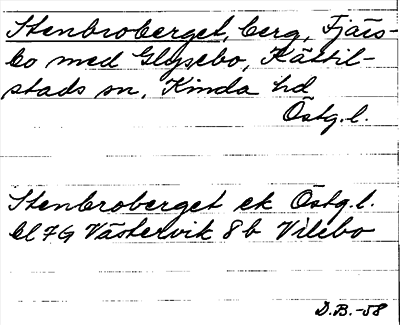 Stenbroberget, berg, Fjäls-
bo med Glysebo, Kättil-
stads sn, Kinda hd
Östg.l.
Stenbroberget ek Östg.l.
bl 7G Västervik 8b Vilebo
D.B.-58